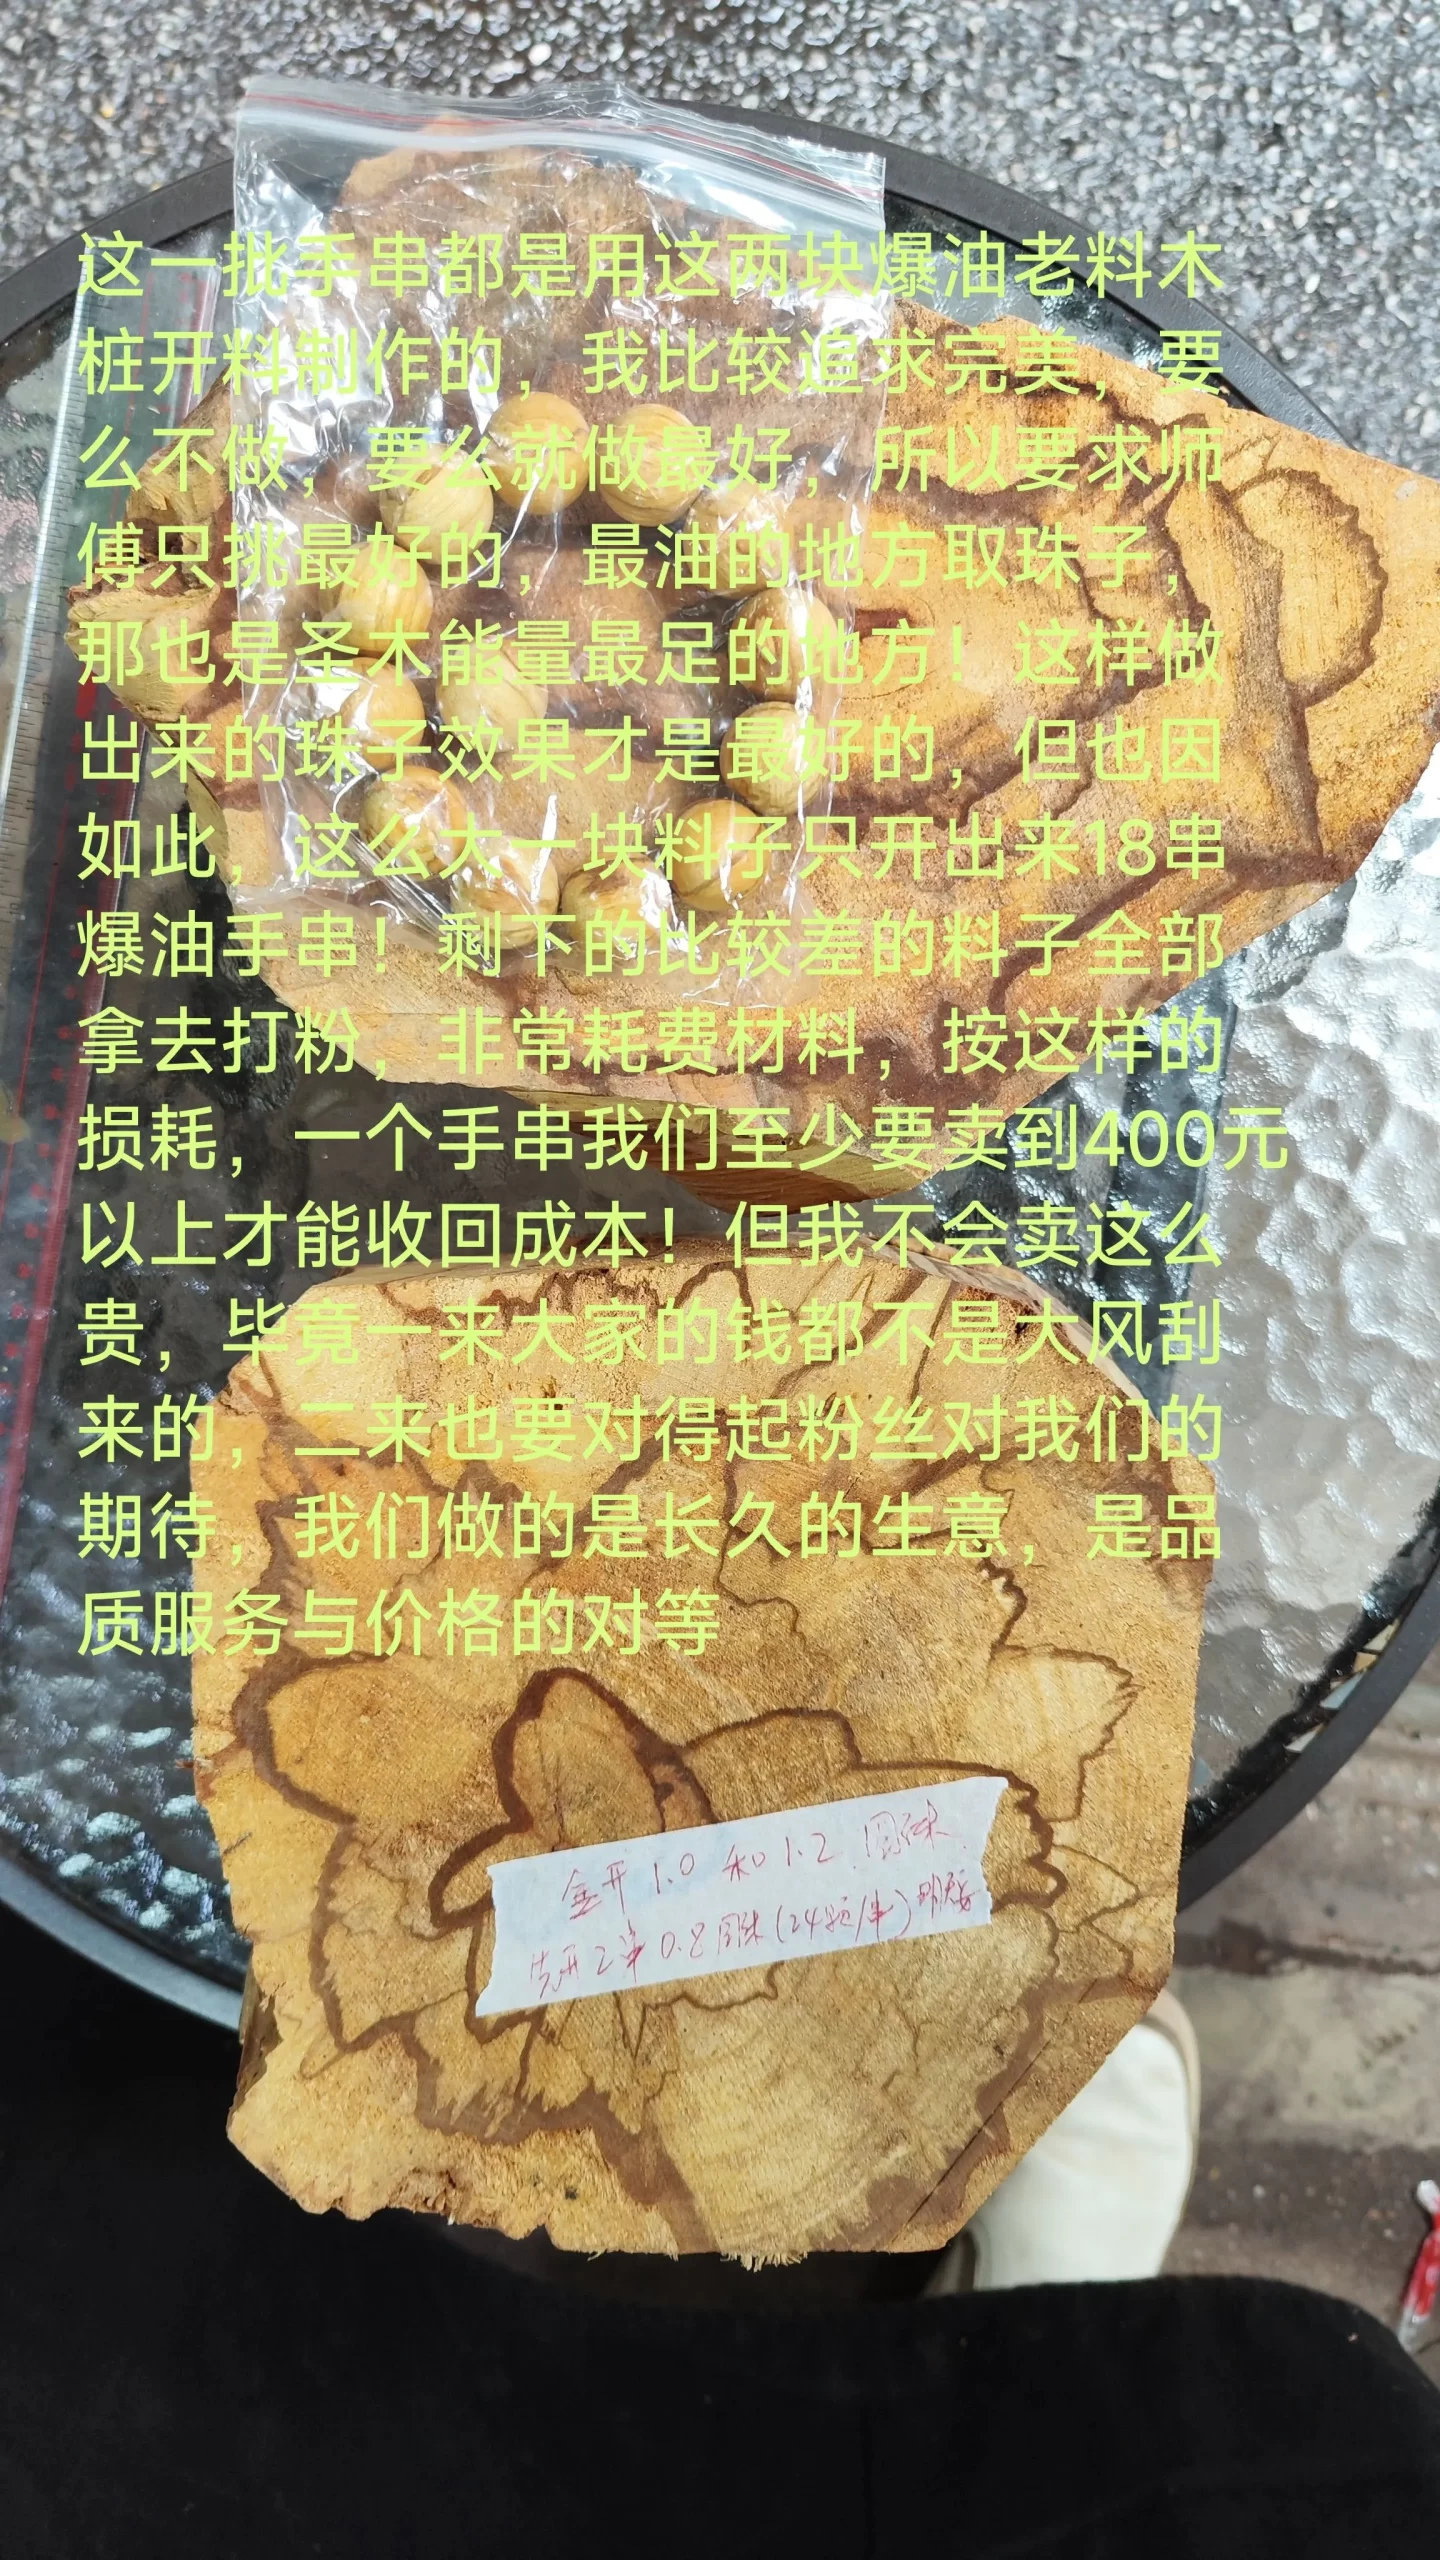 这一批手串都是用这两块爆油老料木
桩开料制作的，我比较追求完美，要
么不做，要么就做最好，所以要求师
傅只挑最好的，最油的地方取珠子，
那也是圣木能量最足的地方！这样做
出来的珠子效果才是最好的，但也因
如此，这么大一块料子只开出来18串
爆油手串！剩下的比较差的料子全部
拿去打粉，非常耗费材料，按这样的
损耗，一个手串我们至少要卖到400元
以上才能收回成本！但我不会卖这么
贵，毕竟一来大家的钱都不是大风刮
来的，二来也要对得起粉丝对我们的
期待，我们做的是长久的生意，是品
质服务与价格的对等
全开1.0和1.2圆珠
先开2串0.8圆珠(24颗/串)